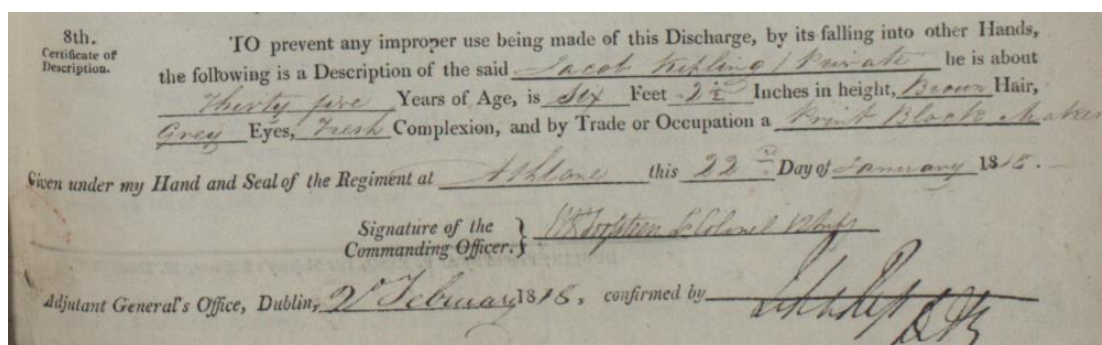 8th.
Certificate of
Description.
TO prevent any improper use being made of this Discharge, by its falling into other Hands,
the following is a Description of the said Jacob Kipling Private he is about
Thirty five Years of Age, is Six Feet 2½ Inches in height, Brown Hair,
Grey Eyes, Fresh Complexion, and by Trade or Occupation a Print Block Maker
Given under my Hand and Seal of the Regiment at Athlone this 22nd Day of January 1818.
Signature of the
Commanding Officer. } Lt Colonel
Adjutant General's Office, Dublin, 2d February 1818, confirmed by